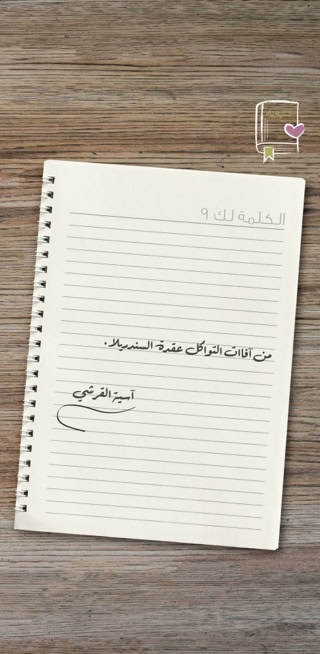 الكلمة لك ٩
من آفات التواكل عقدة السندريلا.
آسية القرشي